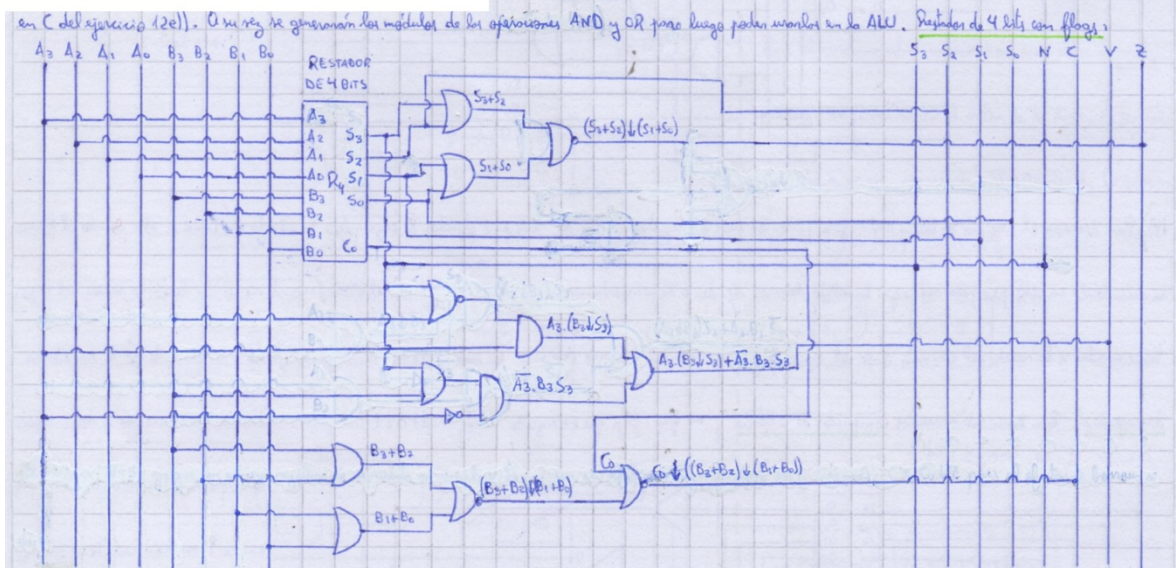 en C del ejercicio 12e)). A su vez se generarán los módulos de las operaciones AND y OR para luego poder usarlos en la ALU. Restador de 4 bits con flags:
A3 A2 A1 A0 B3 B2 B1 B0
S3 S2 S1 S0 N C V Z
RESTADOR
DE 4 BITS
A3
A2
A1
A0
B3
B2
B1
B0
R4
S3
S2
S1
S0
C0
S3+S2
S1+S0
(S3+S2)↓(S1+S0)
A3.(B3↓S3)
A̅3̅.B3.S3
A3.(B3↓S3)+A̅3̅.B3.S3
B3+B2
B1+B0
(B3+B2)↓(B1+B0)
C0
C0↓((B3+B2)↓(B1+B0))